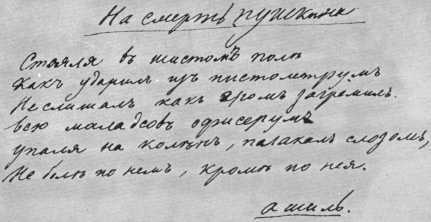 На смерть Пушкина
Стояля въ шистомъ полю
Какъ ударилъ изъ пистолтрумъ
Не слишалъ какъ громъ загремилъ.
всю маладсовъ офисерумъ
упаля на колѣнъ, пачакалъ слозомъ,
Не болю по немъ, кромъ по нея.
а шиль.